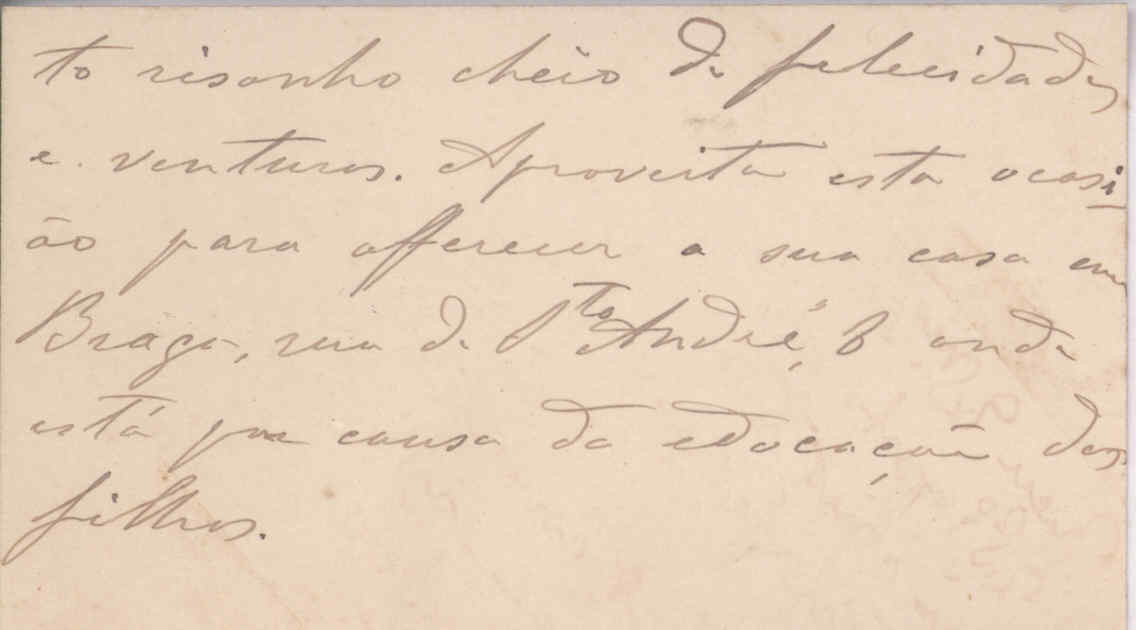 to risonho cheio de felicidades
e venturas. Aproveita esta ocasi
ão para offerecer a sua casa em
Braga, rua de Sto André, 8 onde
está por causa da edocação dos
filhos.